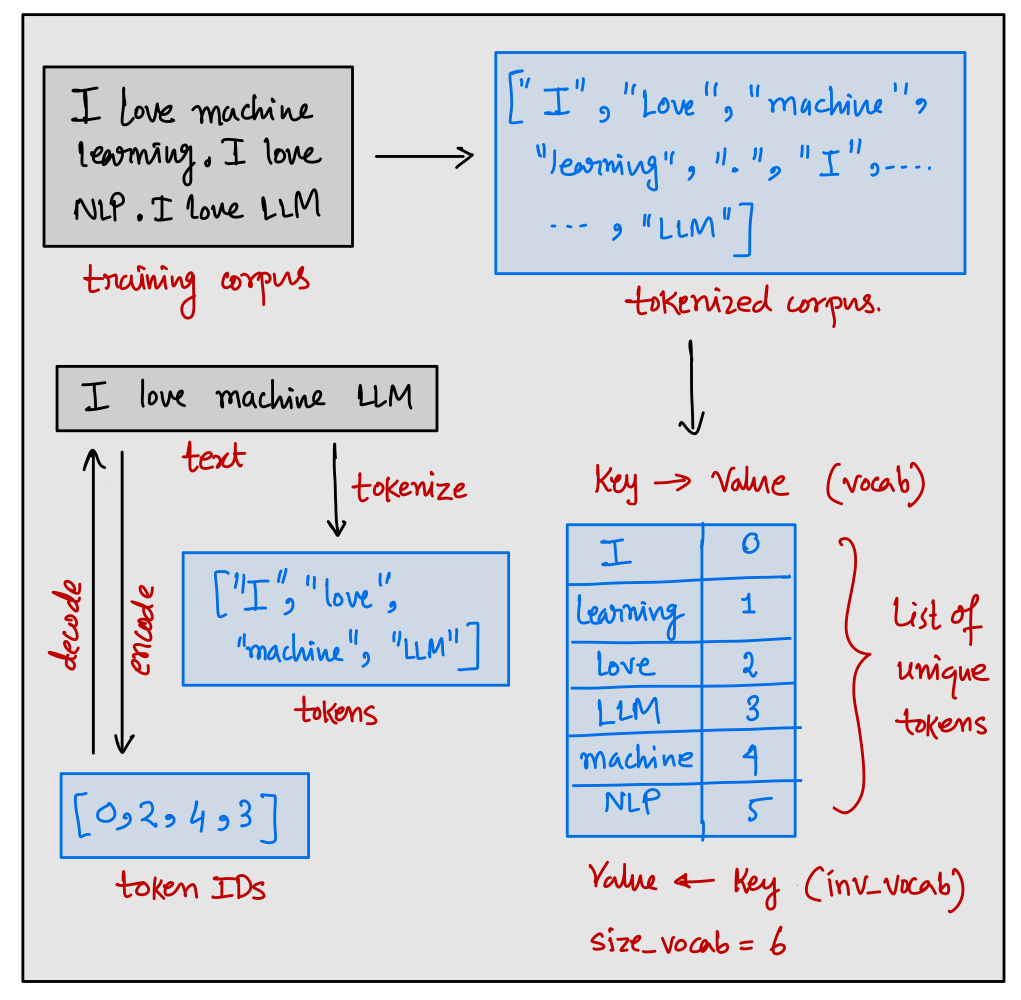 I love machine
learning. I love
NLP. I love LLM
training corpus
["I", "Love", "machine",
"learning", ".", "I", ....
..., "LLM"]
tokenized corpus.
I love machine LLM
text
tokenize
["I", "love",
"machine", "LLM"]
tokens
decode
encode
[0, 2, 4, 3]
token IDs
Key → Value (vocab)
I 0
Learning 1
Love 2
LLM 3
machine 4
NLP 5
List of
unique
tokens
Value ← Key (inv_vocab)
size_vocab = 6